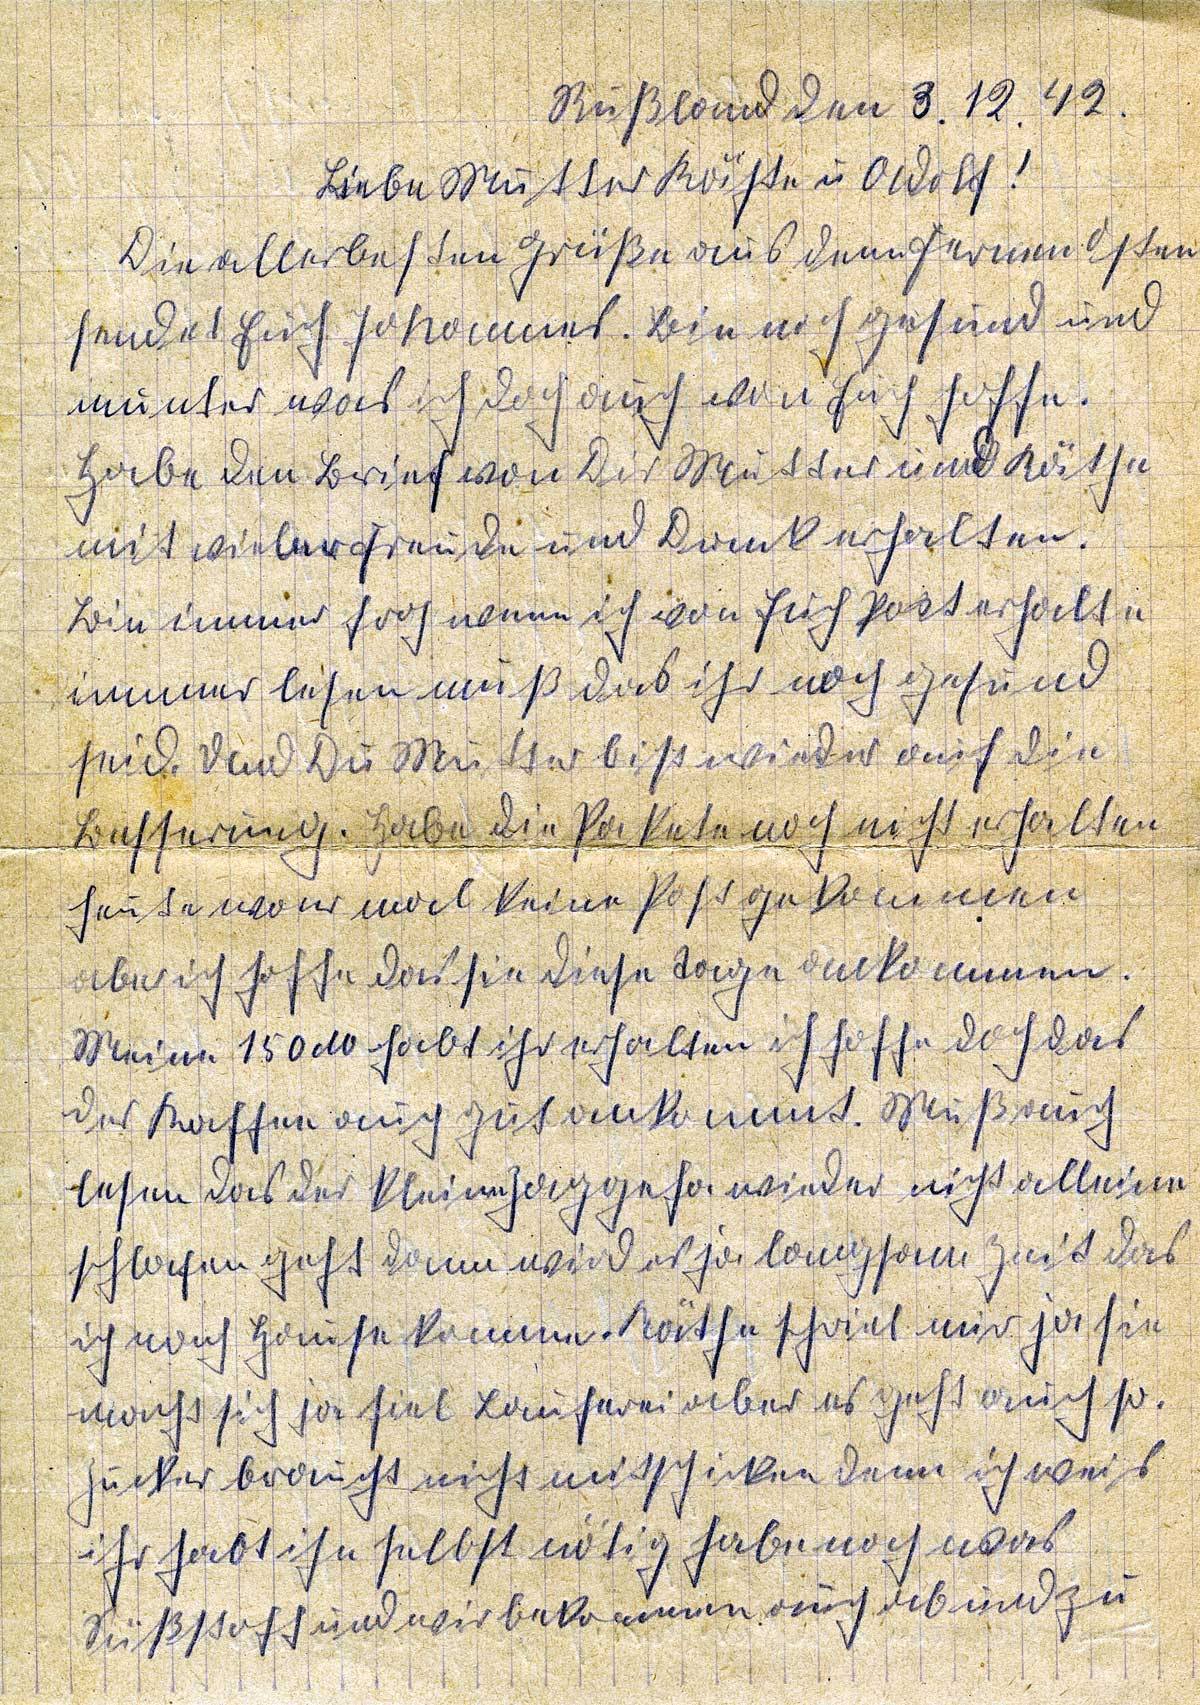 Rußland den 3.12.42.
Liebe Mutter Käthe u Adolf!
Die allerbesten Grüße aus dem fernen Osten
sendet Euch Johannes. Bin noch gesund und
munter was ich doch auch von Euch hoffe.
Habe den Brief von Dir Mutter und Käthe
mit vieler Freude und Dank erhalten.
Bin immer froh wenn ich von Euch Post erhalte
immer lesen muß das ihr noch gesund
seid. Und Du Mutter bist wieder auf die
Besserung. Habe die Pakete noch nicht erhalten
heute war mal keine Post gekommen
aber ich hoffe das sie diese Tage ankommen.
Meine 150 habt ihr erhalten ich hoffe doch das
der Kaffee auch gut ankommt. Muß auch
lesen das der kleine wieder nicht alleine
schlafen geht dann wird es ja langsam Zeit das
ich nach Hause komme. Käthe schrieb mir ja sie
macht sich ja fiel Lauferei aber es geht auch so.
Zucker braucht nicht mitschicken denn ich weis
ihr habt ihn selbst nötig habe noch was
Süßstoff und wir bekommen auch ab und zu